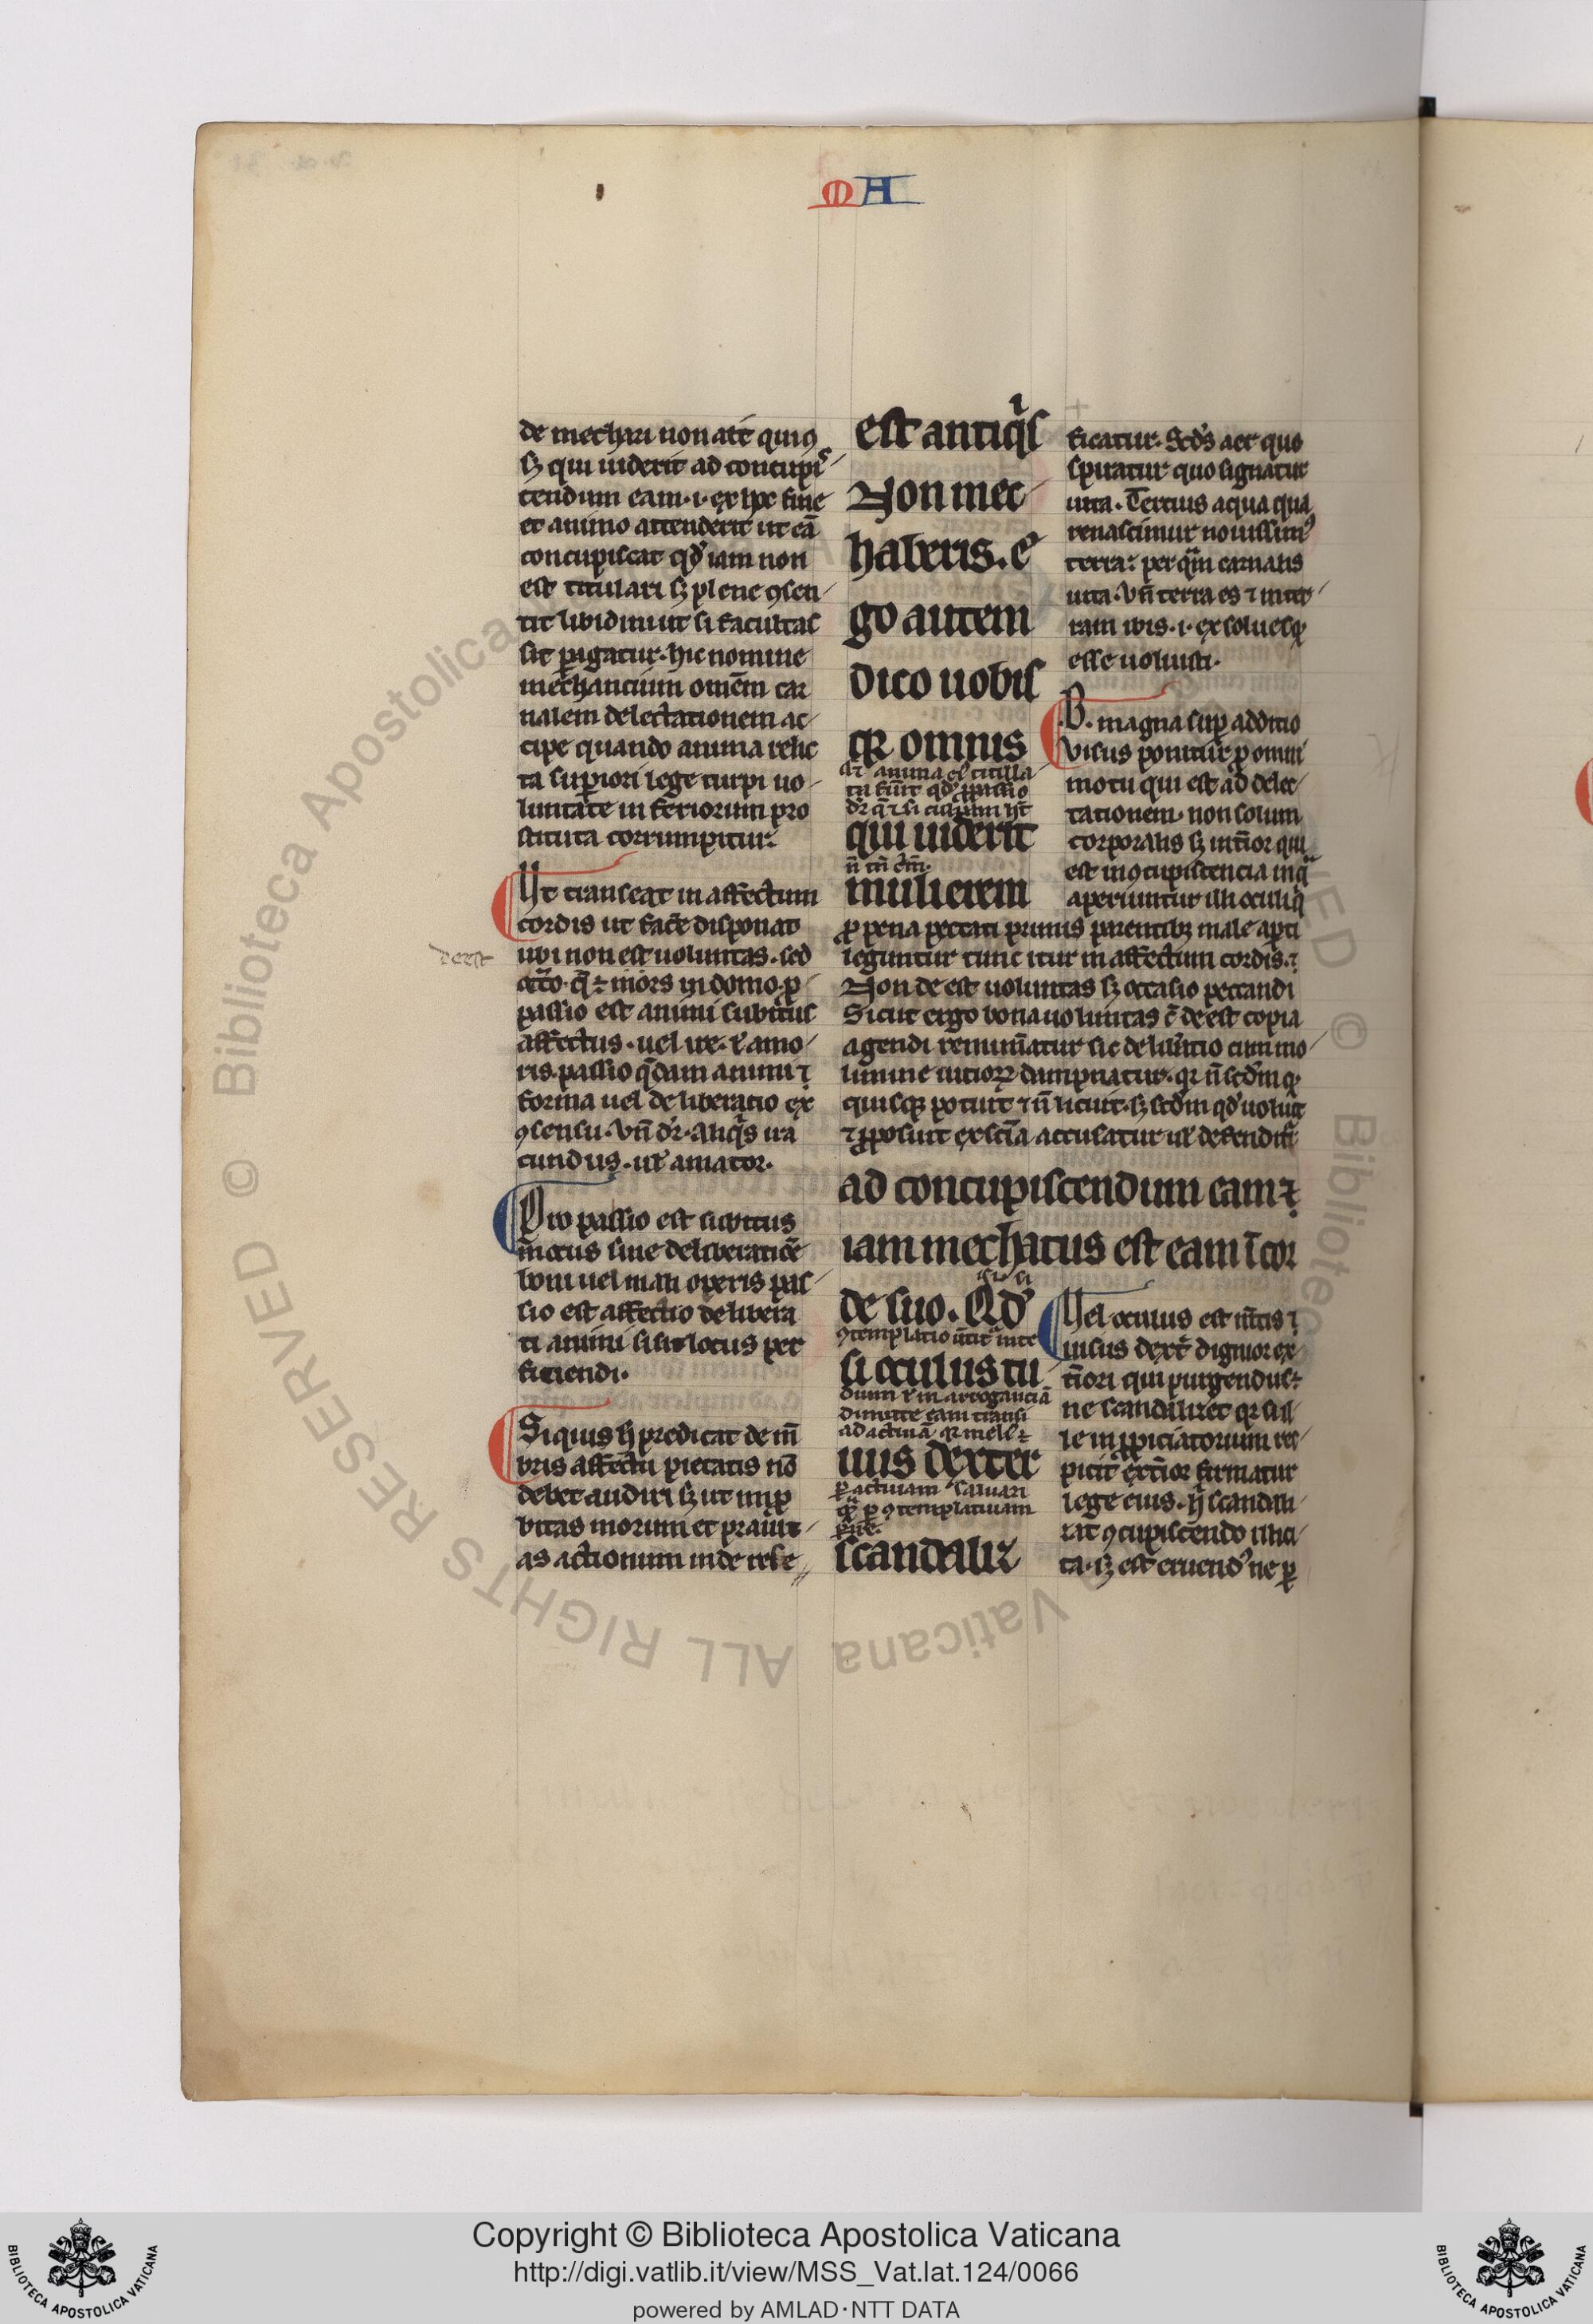 MA
de mechari non ait quiqꝫ
sꝫ qui uiderit ad concupis
cendum eam .i. ex hoc fine
et animo attenderit ut eā
concupiscat qd' iam non
est titulari sꝫ plene ꝯsen
tit libidini ut si facultas
sit ꝑagatur. hic nomine
mechantium omēm car
nalem delectationem ac
cipe quando anima relic
ta suꝑiori lege turpi uo
luntate inferiorum pro
stituta corrumpitur.
Ut transeat in affectum
cordis ut face disponat
ubi non est uoluntas. sed
passio est animi subitus
affectus. uel ire. ł amo
ris. passio q̄dam animi ⁊
forma uel deliberatio ex
ꝯsensu. Vn̄ dr̄. Aliqis ira
cundus. uł amator.
Pro passio est subitus
motus sine deliberatiōe
boni uel mali operis pas
sio est affectio delibera
ti animi si sit locus per
ficiendi.
Si quis h̄ predicat de mē
bris affectu pietatis nō
debet audiri sꝫ ut imꝓ
bitas morum et prauit
as actionum inde rese
derst
est antiqis
Non mec
haberis. e
go autem
dico uobis
qr omnis
qui uiderit
n̄ tn̄ c̄m.
mulierem
ꝓ pena peccati primis parentibꝫ male apti
leguntur tunc itur in affectum cordis. ⁊
Non de est uoluntas sꝫ occasio peccandi
Sicut ergo bona uoluntas c̄ de est copia
agendi remun̄atur sic delib̄atio cum mo
limine uitioꝝ dampnatur. qr n̄ scdm qꝫ
quisqꝫ potuit ⁊ n̄ licuit. sꝫ scdm qd' uoluit
⁊ ꝓposuit ex sciā accusatur uł defendit
ad concupiscendum eam ⁊
iam mechatus est eam ī cor
de suo. Qd'
ꝯtemplatio
si oculus tu
duum ł in arroganciā
dimitte eam transi
ad actiuā
uus dexter
ꝑ actiuam saluari
q̄ ꝑ ꝯtemplatiuam
scandaliz
ficatur. Scds aer quo
spiratur quo signatur
uita. Tercius aqua qua
renascimur nouissime
terra: per qm̄ carnalis
uita. Vn̄ terra es ⁊ in ter
ram ibis .i. ex solo
esse uoluisti.
B. magna suꝑ additio
Visus ponitur ꝓ omni
motu qui est ad delec
tationem. non solum
corporalis sꝫ int̄ior qui
est in ꝯcupiscencia in q̄
aperiuntur illi oculi q̄
Uel oculus est m̄tis ⁊
uisus dext̄ dignior ex
t̄iori qui purgendus:
ne scandalizet qr si il
le in ꝓpiciatorium res
picit ext̄ior firmatur
lege eius. h̄ scandali
zat ꝯcupiscendo illici
ta. sꝫ est eruend' ne ꝑ
Copyright © Biblioteca Apostolica Vaticana
http://digi.vatlib.it/view/MSS_Vat.lat.124/0066
powered by AMLAD·NTT DATA
BIBLIOTECA APOSTOLICA VATICANA
BIBLIOTECA APOSTOLICA VATICANA
© Biblioteca Apostolica Vaticana ALL RIGHTS RESERVED